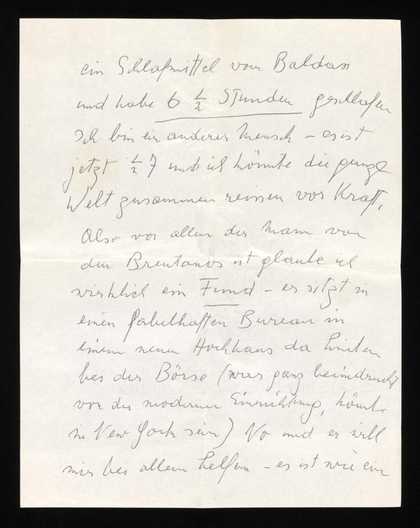 ein Schlafmittel von Baldass
und habe 6 1/2 Stunden geschlafen
Ich bin ein anderer Mensch – es ist
jetzt 1/2 7 und ich könnte die ganze
Welt zusammen reissen vor Kraft.
Also vor allem der Mann von
den Brentanos ist glaube ich
wirklich ein Fund – er sitzt in
einem fabelhaften Bureau in
einem neuen Hochhaus da hinten
bei der Börse (war ganz beeindruckt
von der modernen Einrichtung, könnte
in New York sein) No und er will
mir bei allem helfen – es ist wie ein